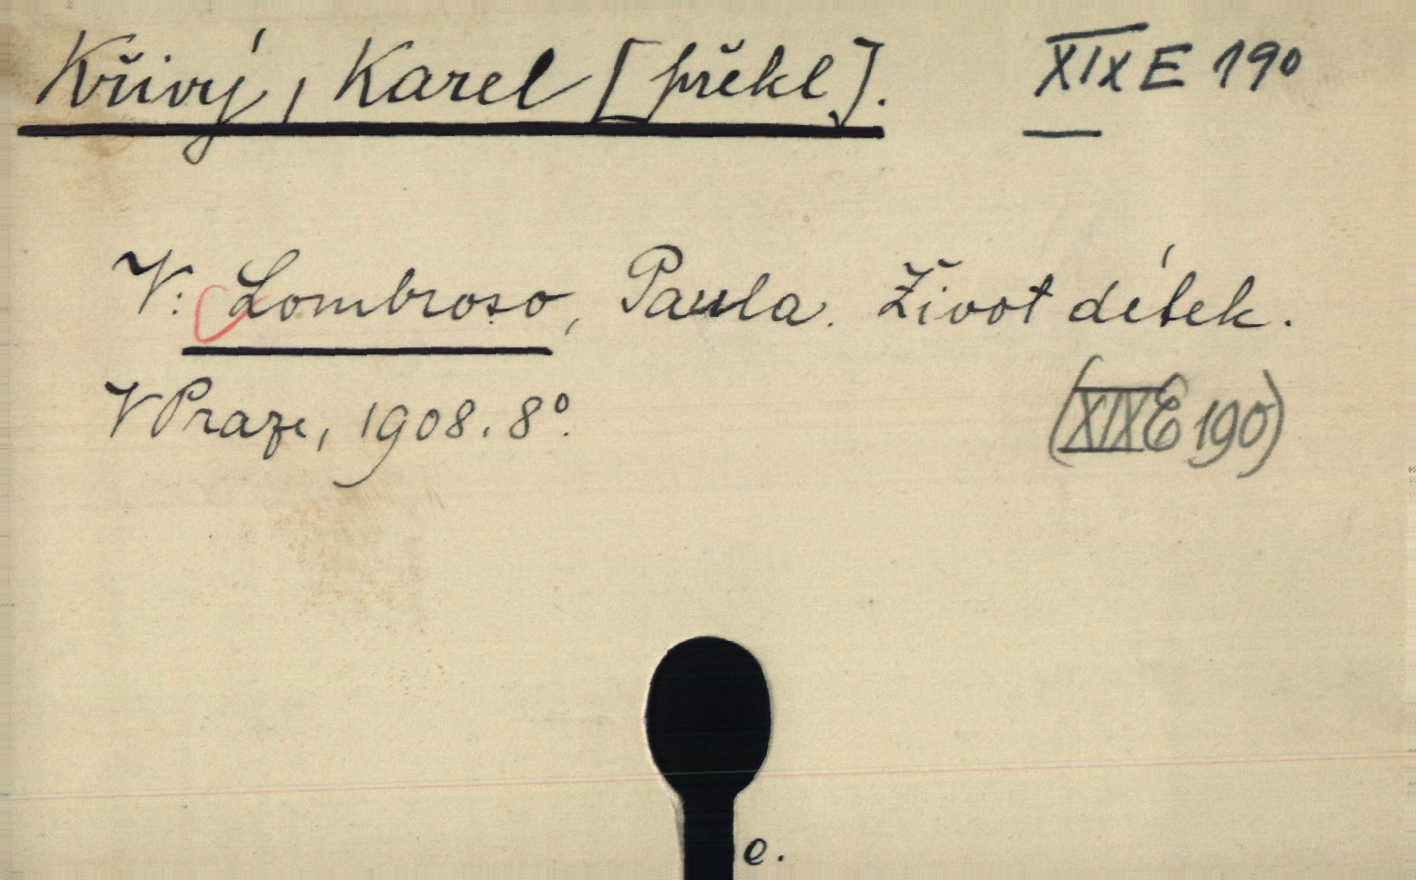 Křivý, Karel [překl]. XIX E 190
V: Lombroso, Paula. Život détek.
V Praze, 1908. 8°. (XIX E 190)
e.